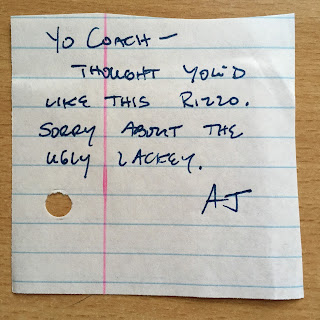 YO COACH —
THOUGHT YOU'D
LIKE THIS RIZZO.
SORRY ABOUT THE
UGLY LACKEY.
AJ